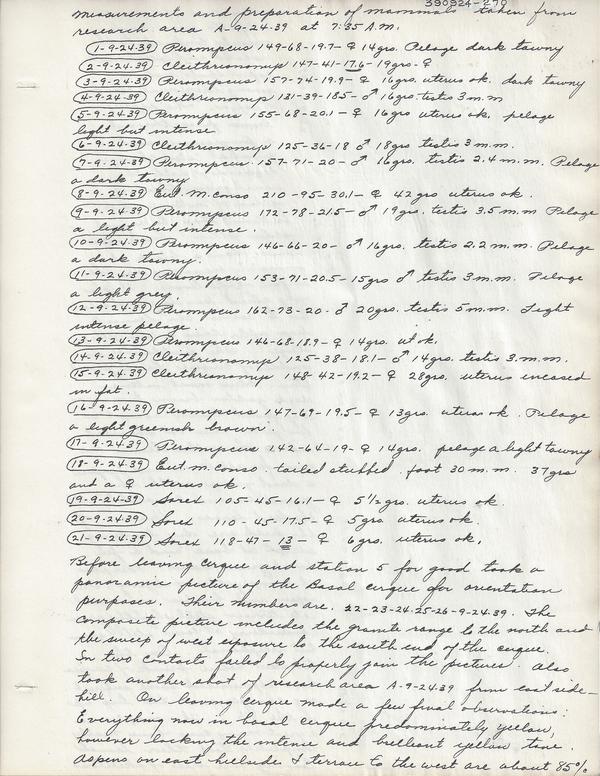 390924-270
measurements and preparation of mammals taken from
research area A-9-24-39 at 7:35 A.M.
1-9-24-39 Peromyscus 149-68-19.7- ♀ 14grs. Pelage dark tawny
2-9-24-39 Cleithrionomys 147-41-17.6- 19grs- ♀
3-9-24-39 Peromyscus 157-74-19.9- ♀ 16grs. uterus ok. dark tawny
4-9-24-39 Cleithrionomys 131-39-185- ♂ 16grs. testis 3 m.m
5-9-24-39 Peromyscus 155-68-20.1- ♀ 16grs uterus ok, pelage
light but intense
6-9-24-39 Cleithrionomys 125-36-18 ♂ 18grs testis 3 m.m.
7-9-24-39 Peromyscus 157-71-20- ♂ 16grs. testis 2.4 m.m. Pelage
a dark tawny
8-9-24-39 Eut. m. conso 210-95-30.1- ♀ 42grs uterus ok.
9-9-24-39 Peromyscus 172-78-21.5- ♂ 19grs. testis 3.5 m.m Pelage
a light but intense.
10-9-24-39 Peromyscus 146-66-20- ♂ 16grs. testis 2.2 m.m. Pelage
a dark tawny.
11-9-24-39 Peromyscus 153-71-20.5- 15grs ♂ testis 3 m.m. Pelage
a light grey.
12-9-24-39 Peromyscus 162-73-20- ♂ 20grs. testis 5 m.m. Light
intense pelage.
13-9-24-39 Peromyscus 146-68-18.9- ♀ 14grs. ut ok.
14-9-24-39 Cleithrionomys 125-38-18.1- ♂ 14grs. testis 3. m.m.
15-9-24-39 Cleithrionomys 148-42-19.2- ♀ 28grs. uterus encased
in fat.
16-9-24-39 Peromyscus 147-69-19.5- ♀ 13grs. uterus ok. Pelage
a light greenish brown.
17-9-24-39 Peromyscus 142-64-19- ♀ 14grs. pelage a light tawny
18-9-24-39 Eut. m. conso. tailed stubbed. foot 30 m.m. 37grs
and a ♀ uterus ok.
19-9-24-39 Sorex 105-45-16.1- ♀ 5½grs. uterus ok.
20-9-24-39 Sorex 110-45-17.5- ♀ 5grs. uterus ok.
21-9-24-39 Sorex 118-47-13- ♀ 6grs. uterus ok.
Before leaving cirque and station 5 for good took a
panoramic picture of the Basal cirque for orientation
purposes. Their numbers are. 22-23-24-25-26-9-24-39. The
composite picture includes the granite range to the north and
the sweep of west exposure to the south end of the cirque.
In two contacts failed to properly join the pictures. Also
took another shot of research area A-9-24-39 from east side-
hill. On leaving cirque made a few final observations:
Everything now in basal cirque predominately yellow,
however lacking the intense and brilliant yellow tone.
Aspens on east hillside & terrace to the west are about 85%